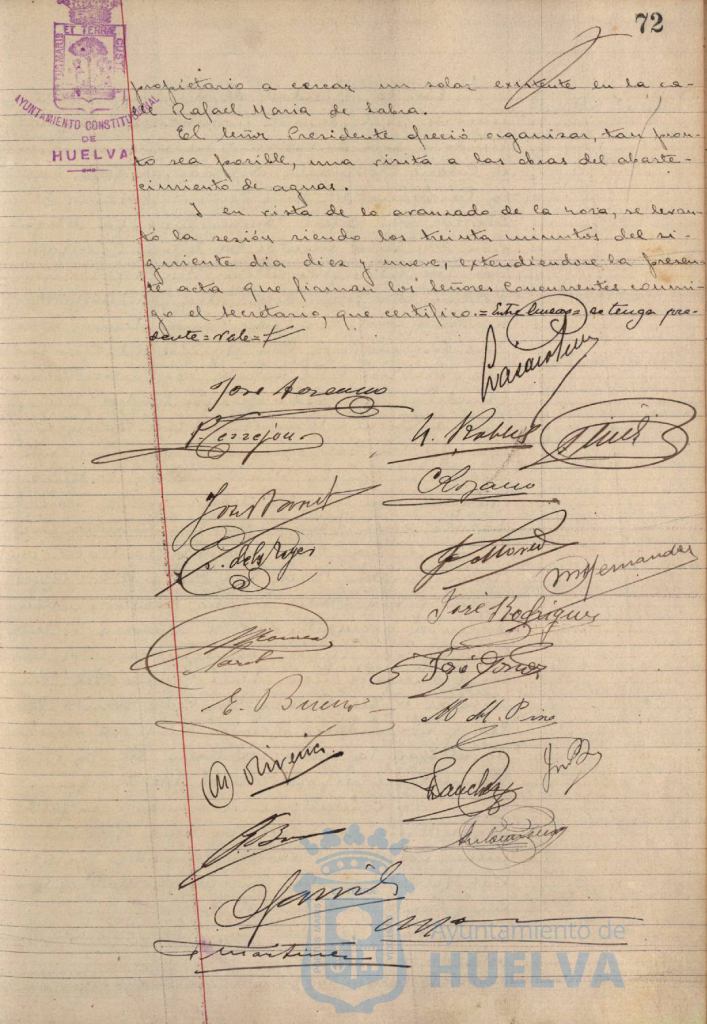 72
PORTUS MARIS ET TERRAE CUSTODIA
AYUNTAMIENTO CONSTITUCIONAL
DE
HUELVA
propietario a cercar un solar existente en la ca-
lle Rafael Maria de Labra.
El Señor Presidente ofreció organizar, tan pron-
to sea posible, una visita a las obras del abaste-
cimiento de aguas.
Y en vista de lo avanzado de la hora, se levan-
tó la sesión siendo las treinta minutos del si-
guiente dia diez y nueve, extendiendose la presen-
te acta que firman los Señores Concurrentes conmi-
go el Secretario, que certifico.=Entre lineas=se tenga pre-
sente=vale=
P. Terrejon
A. Robles
C Lozano
R. de los Reyes
M Hernandez
José Rodriguez
E. Bueno
M M. Pino
M Oliveira
Sanchez
Martinez
Ayuntamiento de
HUELVA